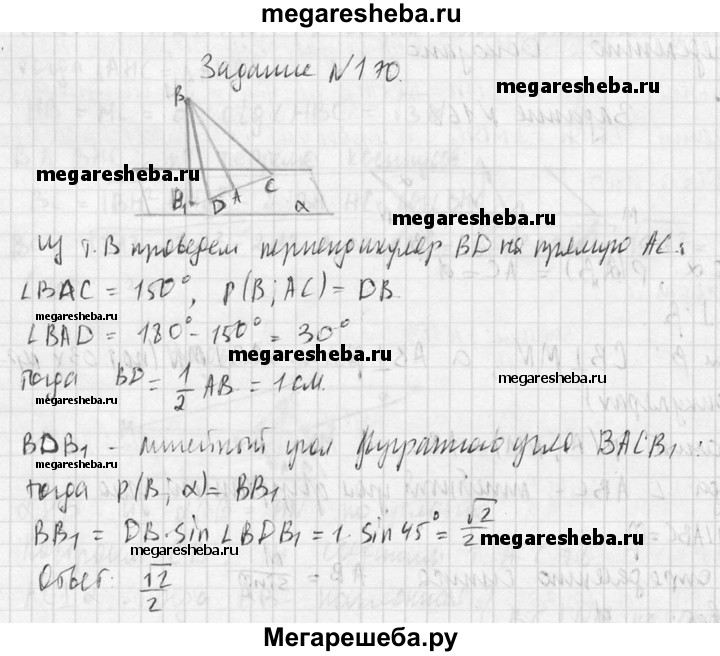 megaresheba.ru
Задание №170.
megaresheba.ru
B
megaresheba.ru
B₁ D A C α
megaresheba.ru
Из т. B проведем перпендикуляр BD на прямую AC:
∠BAC = 150°, ρ(B; AC) = DB.
∠BAD = 180° - 150° = 30°
megaresheba.ru
Тогда BD = 1/2 AB = 1 см.
megaresheba.ru
megaresheba.ru
BDB₁ - линейный угол двугранного угла BACB₁:
megaresheba.ru
тогда ρ(B; α) = BB₁
megaresheba.ru
BB₁ = DB · sin ∠BDB₁ = 1 · sin 45° = √2/2
megaresheba.ru
megaresheba.ru
Ответ: √2/2
megaresheba.ru
Мегарешеба.ру